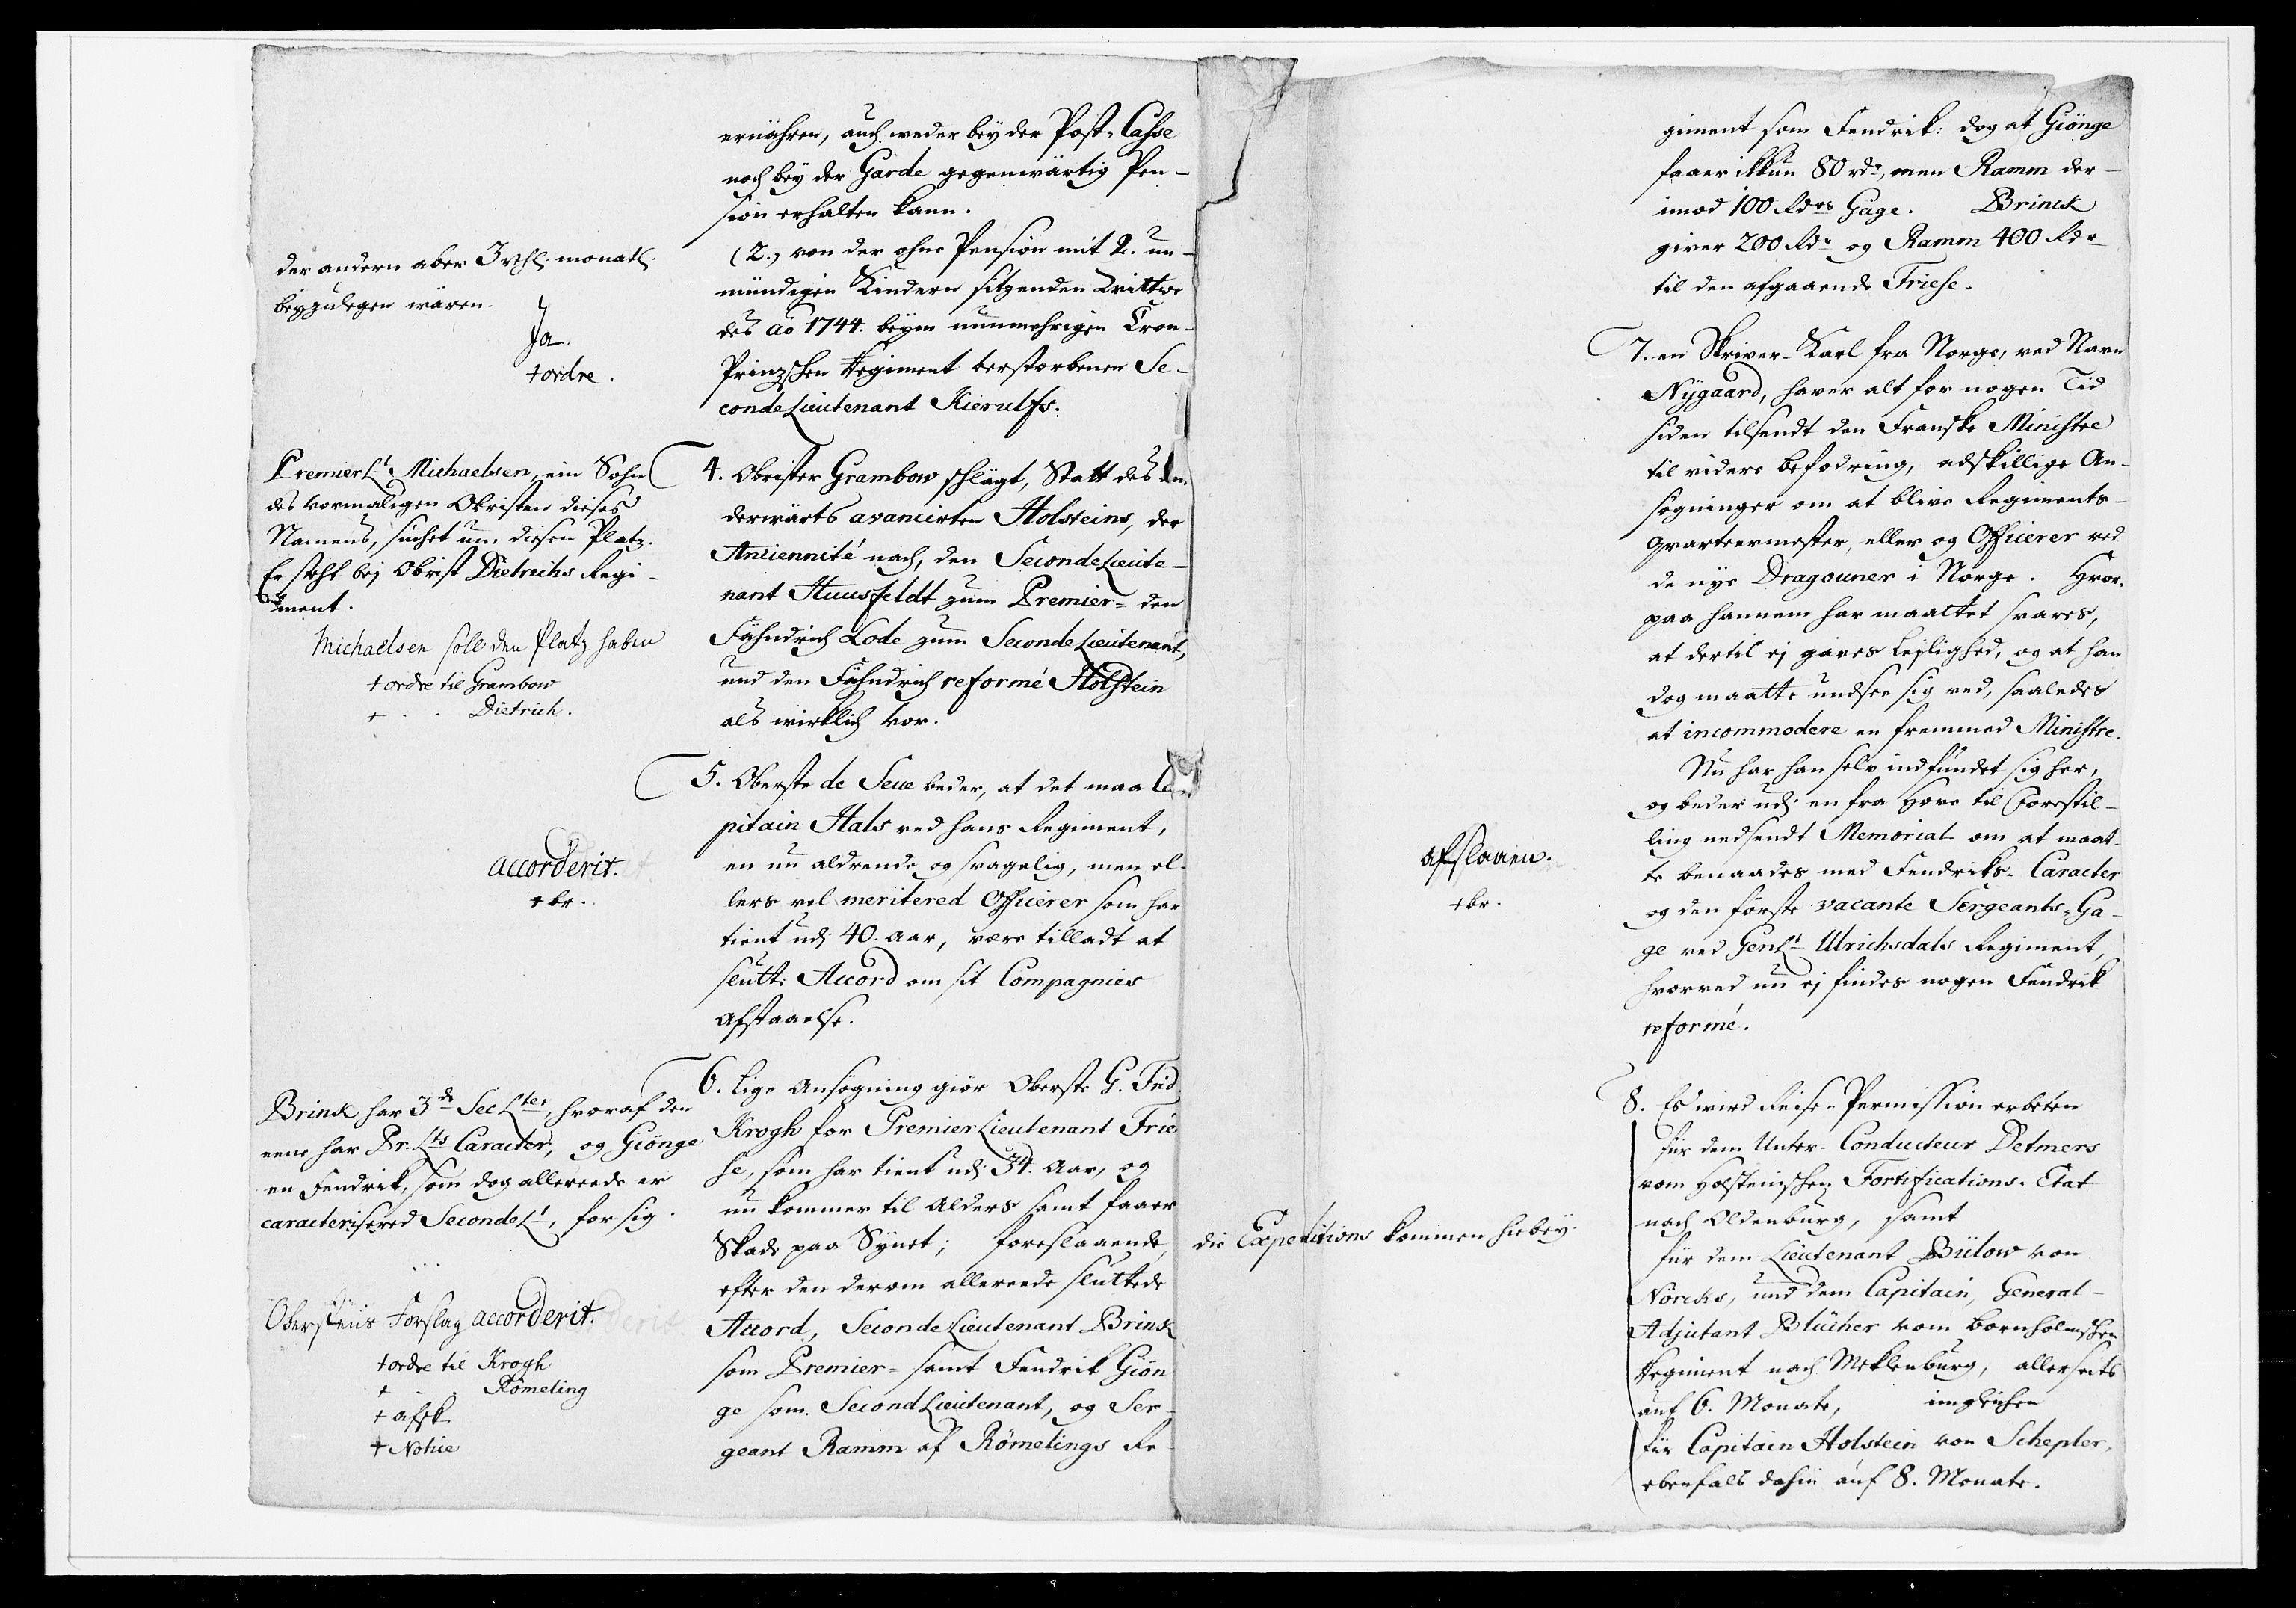 ernähren, auch weder bey der Post-Casse
noch bey der Garde gegenwärtig Pen-
sion erhalten kann.
(2.) von der ohne Pension mit 2. un-
mündigen Kindern sitzenden Wittwe
des ao 1744. beym nunmehrigen Cron-
Prinzschen Regiment verstorbenen Se-
conde Lieutenant Kierulfs.
der andern aber 3 rthl. monatl.
beyzulegen wären.
Ja.
+ ordre.
4. Obrister Grambow schlägt, Statt des an-
derwärts avancirten Holsteins, der
Anciennité nach, den Seconde Lieute-
nant Huusfeldt zum Premier- den
Fähndrich Lode zum Seconde Lieutenant,
und den Fähndrich reformé Holstein
als wirklich vor.
Premier Lt Michaelsen, ein Sohn
des vormaligen Obristen dieses
Namens, suchet um diesen Platz.
Er steht bey Obrist Dietrichs Regi-
ment.
Michaelsen soll den Platz haben
+ ordre til Grambow
+ . . Dietrich.
5. Oberste de Seue beder, at det maa Ca-
pitain Hals ved hans Regiment,
en nu aldrende og svagelig, men el-
lers vel meritered Officerer som har
tient udi 40. Aar, være tilladt at
slutte Accord om sit Compagnies
Afstaaelse.
accorderit.
+ br.
6. Lige Ansøgning giør Oberste G. Frid.
Krogh for Premier Lieutenant Frie
se, som har tient udi 34. Aar, og
nu kommer til Alders samt faaer
Skade paa Synet; foreslaaende,
efter den derom allereede sluttede
Accord, Seconde Lieutenant Brink
som Premier- samt Fendrik Giön
ge som Second Lieutenant, og Ser-
geant Ramm af Römelings Re-
Brink har 3de Sec Lter, hvoraf den
eene har Pr. Lts Caracter, og Giönge
en Fendrik, som dog allereede er
caracterisered Seconde Lt, for sig.
Oberstens Forslag accorderit.
+ ordre til Krogh
+ . . Römeling
+ afsk.
+ Notice
giment som Fendrik: dog at Giönge
faaer ikkun 80 rdr, men Ramm der-
imod 100 Rdrs Gage. Brinck
giver 200 Rdr og Ramm 400 Rdr
til den afgaaende Friese.
7. en Skriver-Karl fra Norge, ved Navn
Nÿgaard, haver alt for nogen Tid
siden tilsendt den Franske Ministre
til videre befodring, adskillige An-
søgninger om at blive Regiments-
Qvarteermester, eller og Officerer ved
de nye Dragouner i Norge. Hvor-
paa hannem har maattet svares,
at dertil ej gaves Leylighed, og at han
dog maatte undsee sig ved, saaledes
at incommodere en fremmed Ministre.
Nu har han selv indfundet sig her,
og beder udi en fra Hove til Forestil-
ling nedsendt Memorial om at maat-
te benaades med Fendriks-Caracter
og den første vacante Sergeants-Ga-
ge ved GenLt Ulrichsdals Regiment,
hvorved nu ej findes nogen Fendrik
reformé.
afslaaen.
+ br.
8. Es wird Reise-Permission erbeten
für dem Unter-Conducteur Detmers
vom Holsteinischen Fortifications-Etat
nach Oldenburg, samt
für dem Lieutenant Bülow von
Nörcks, und dem Capitain, General-
Adjutant Blücher vom Bornholmschen
Regiment nach Meklenburg, allerseits
auf 6. Monate, imgleichen
für Capitain Holstein von Schepler,
ebenfals dahin auf 8. Monate.
die Expeditions kommen hiebey.